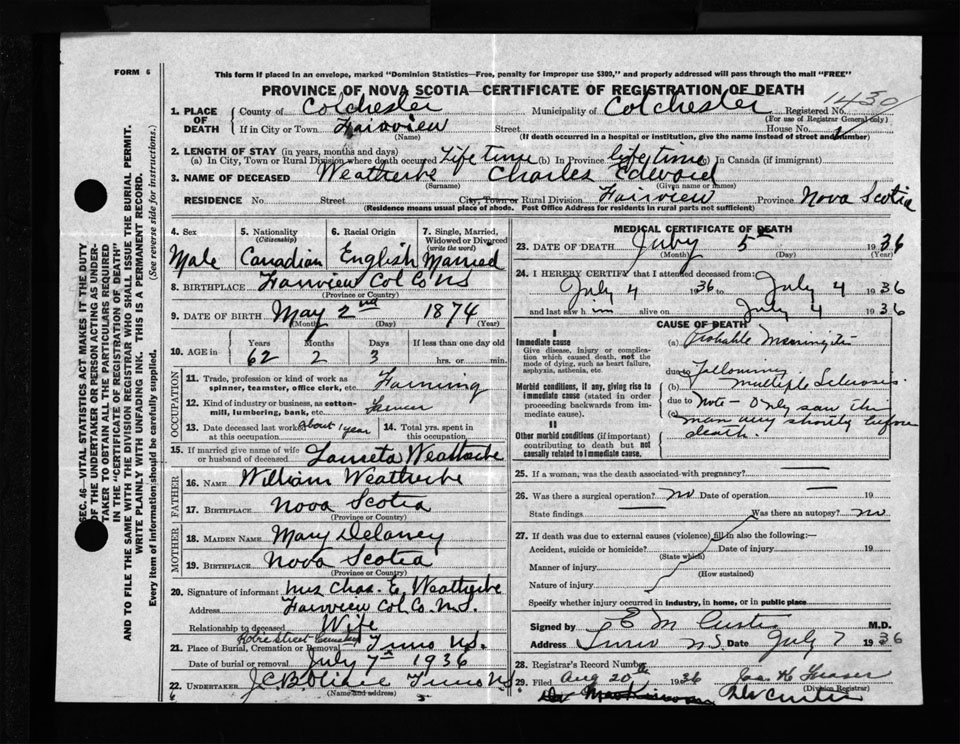 FORM 6
This form if placed in an envelope, marked "Dominion Statistics—Free, penalty for improper use $300," and properly addressed will pass through the mail "FREE"
PROVINCE OF NOVA SCOTIA—CERTIFICATE OF REGISTRATION OF DEATH
1430
1. PLACE OF DEATH County of Colchester Municipality of Colchester Registered No.
(For use of Registrar General only)
If in City or Town Fairview Street House No.
(Name) (If death occurred in a hospital or institution, give the name instead of street and number)
2. LENGTH OF STAY (in years, months and days)
(a) In City, Town or Rural Division where death occurred Life time (b) In Province life time (c) In Canada (if immigrant)
3. NAME OF DECEASED Weatherbe Charles Edward
(Surname) (Given name or names)
RESIDENCE No. Street City, Town or Rural Division Fairview Province Nova Scotia
(Residence means usual place of abode. Post Office Address for residents in rural parts not sufficient)
4. Sex 5. Nationality (Citizenship) 6. Racial Origin 7. Single, Married, Widowed or Divorced (write the word)
Male Canadian English Married
8. BIRTHPLACE Fairview Col Co NS
(Province or Country)
9. DATE OF BIRTH May 2nd 1874
(Month) (Day) (Year)
10. AGE in Years Months Days If less than one day old
62 2 3 hrs. or min.
OCCUPATION
11. Trade, profession or kind of work as spinner, teamster, office clerk, etc. Farming
12. Kind of industry or business, as cotton-mill, lumbering, bank, etc. Farmer
13. Date deceased last worked at this occupation About 1 year 14. Total yrs. spent in this occupation
15. If married give name of wife or husband of deceased Weatherbe
FATHER
16. Name William Weatherbe
17. Birthplace Nova Scotia
(Province or Country)
MOTHER
18. Maiden Name Mary Delaney
19. Birthplace Nova Scotia
(Province or Country)
20. Signature of informant Mrs Chas. E. Weatherbe
Address Fairview Col. Co. N.S.
Relationship to deceased Wife
21. Place of Burial, Cremation or Removal Robie Street Cemetery Truro NS.
Date of burial or removal July 7th 1936
22. UNDERTAKER Truro NS
(Name and address)
MEDICAL CERTIFICATE OF DEATH
23. DATE OF DEATH July 5th 1936
(Month) (Day) (Year)
24. I HEREBY CERTIFY that I attended deceased from:
July 4 1936 to July 4 1936
and last saw him alive on July 4 1936
CAUSE OF DEATH
I
Immediate cause
Give disease, injury or complication which caused death, not the mode of dying, such as heart failure, asphyxia, asthenia, etc.
(a) Probable Meningitis
due to following
Morbid conditions, if any, giving rise to immediate cause (stated in order proceeding backwards from immediate cause).
(b) Multiple Sclerosis.
due to Note - Only saw this man very shortly before death.
II
Other morbid conditions (if important) contributing to death but not causally related to immediate cause.
25. If a woman, was the death associated with pregnancy?
26. Was there a surgical operation? no Date of operation 19
State findings Was there an autopsy? no
27. If death was due to external causes (violence) fill in also the following:—
Accident, suicide or homicide? Date of injury 19
(State which)
Manner of injury
(How sustained)
Nature of injury
Specify whether injury occurred in industry, in home, or in public place
Signed by E M Curtis M.D.
Address Truro N.S. Date July 7 1936
28. Registrar's Record Number
29. Filed Aug 20th 1936 Jas. K. Fraser
(Division Registrar)
Dr Curtis
SEC. 46—VITAL STATISTICS ACT MAKES IT THE DUTY
OF THE UNDERTAKER OR PERSON ACTING AS UNDER-
TAKER TO OBTAIN ALL THE PARTICULARS REQUIRED
IN THE "CERTIFICATE OF REGISTRATION OF DEATH"
AND TO FILE THE SAME WITH THE DIVISION REGISTRAR WHO SHALL ISSUE THE BURIAL PERMIT.
WRITE PLAINLY WITH UNFADING INK. THIS IS A PERMANENT RECORD.
Every item of information should be carefully supplied. (See reverse side for instructions.)